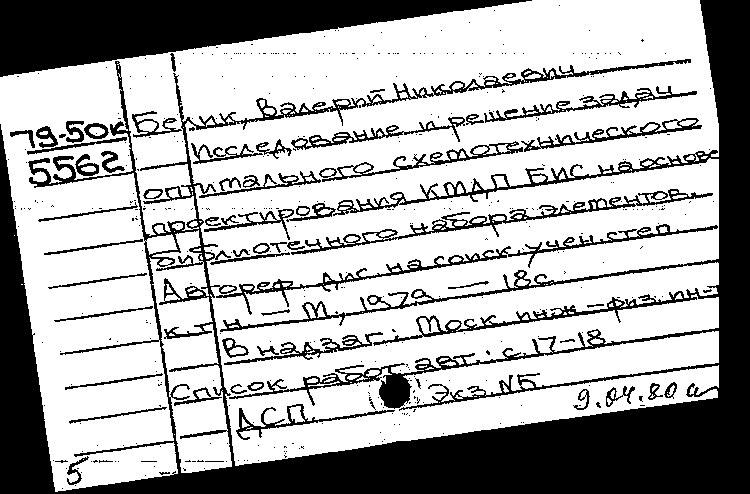 79-50к Белик, Валерий Николаевич
5562 Исследование и решение задач
оптимального схемотехнического
проектирования КМДП БИС на основе
библиотечного набора элементов.
Автореф. дис. на соиск. учен. степ.
к.т.н. — М., 1979. — 18с.
В надзаг.: Моск. инж.-физ. ин-т
Список работ авт.: с. 17-18
ДСП. Экз. №Б
9.04.80
5